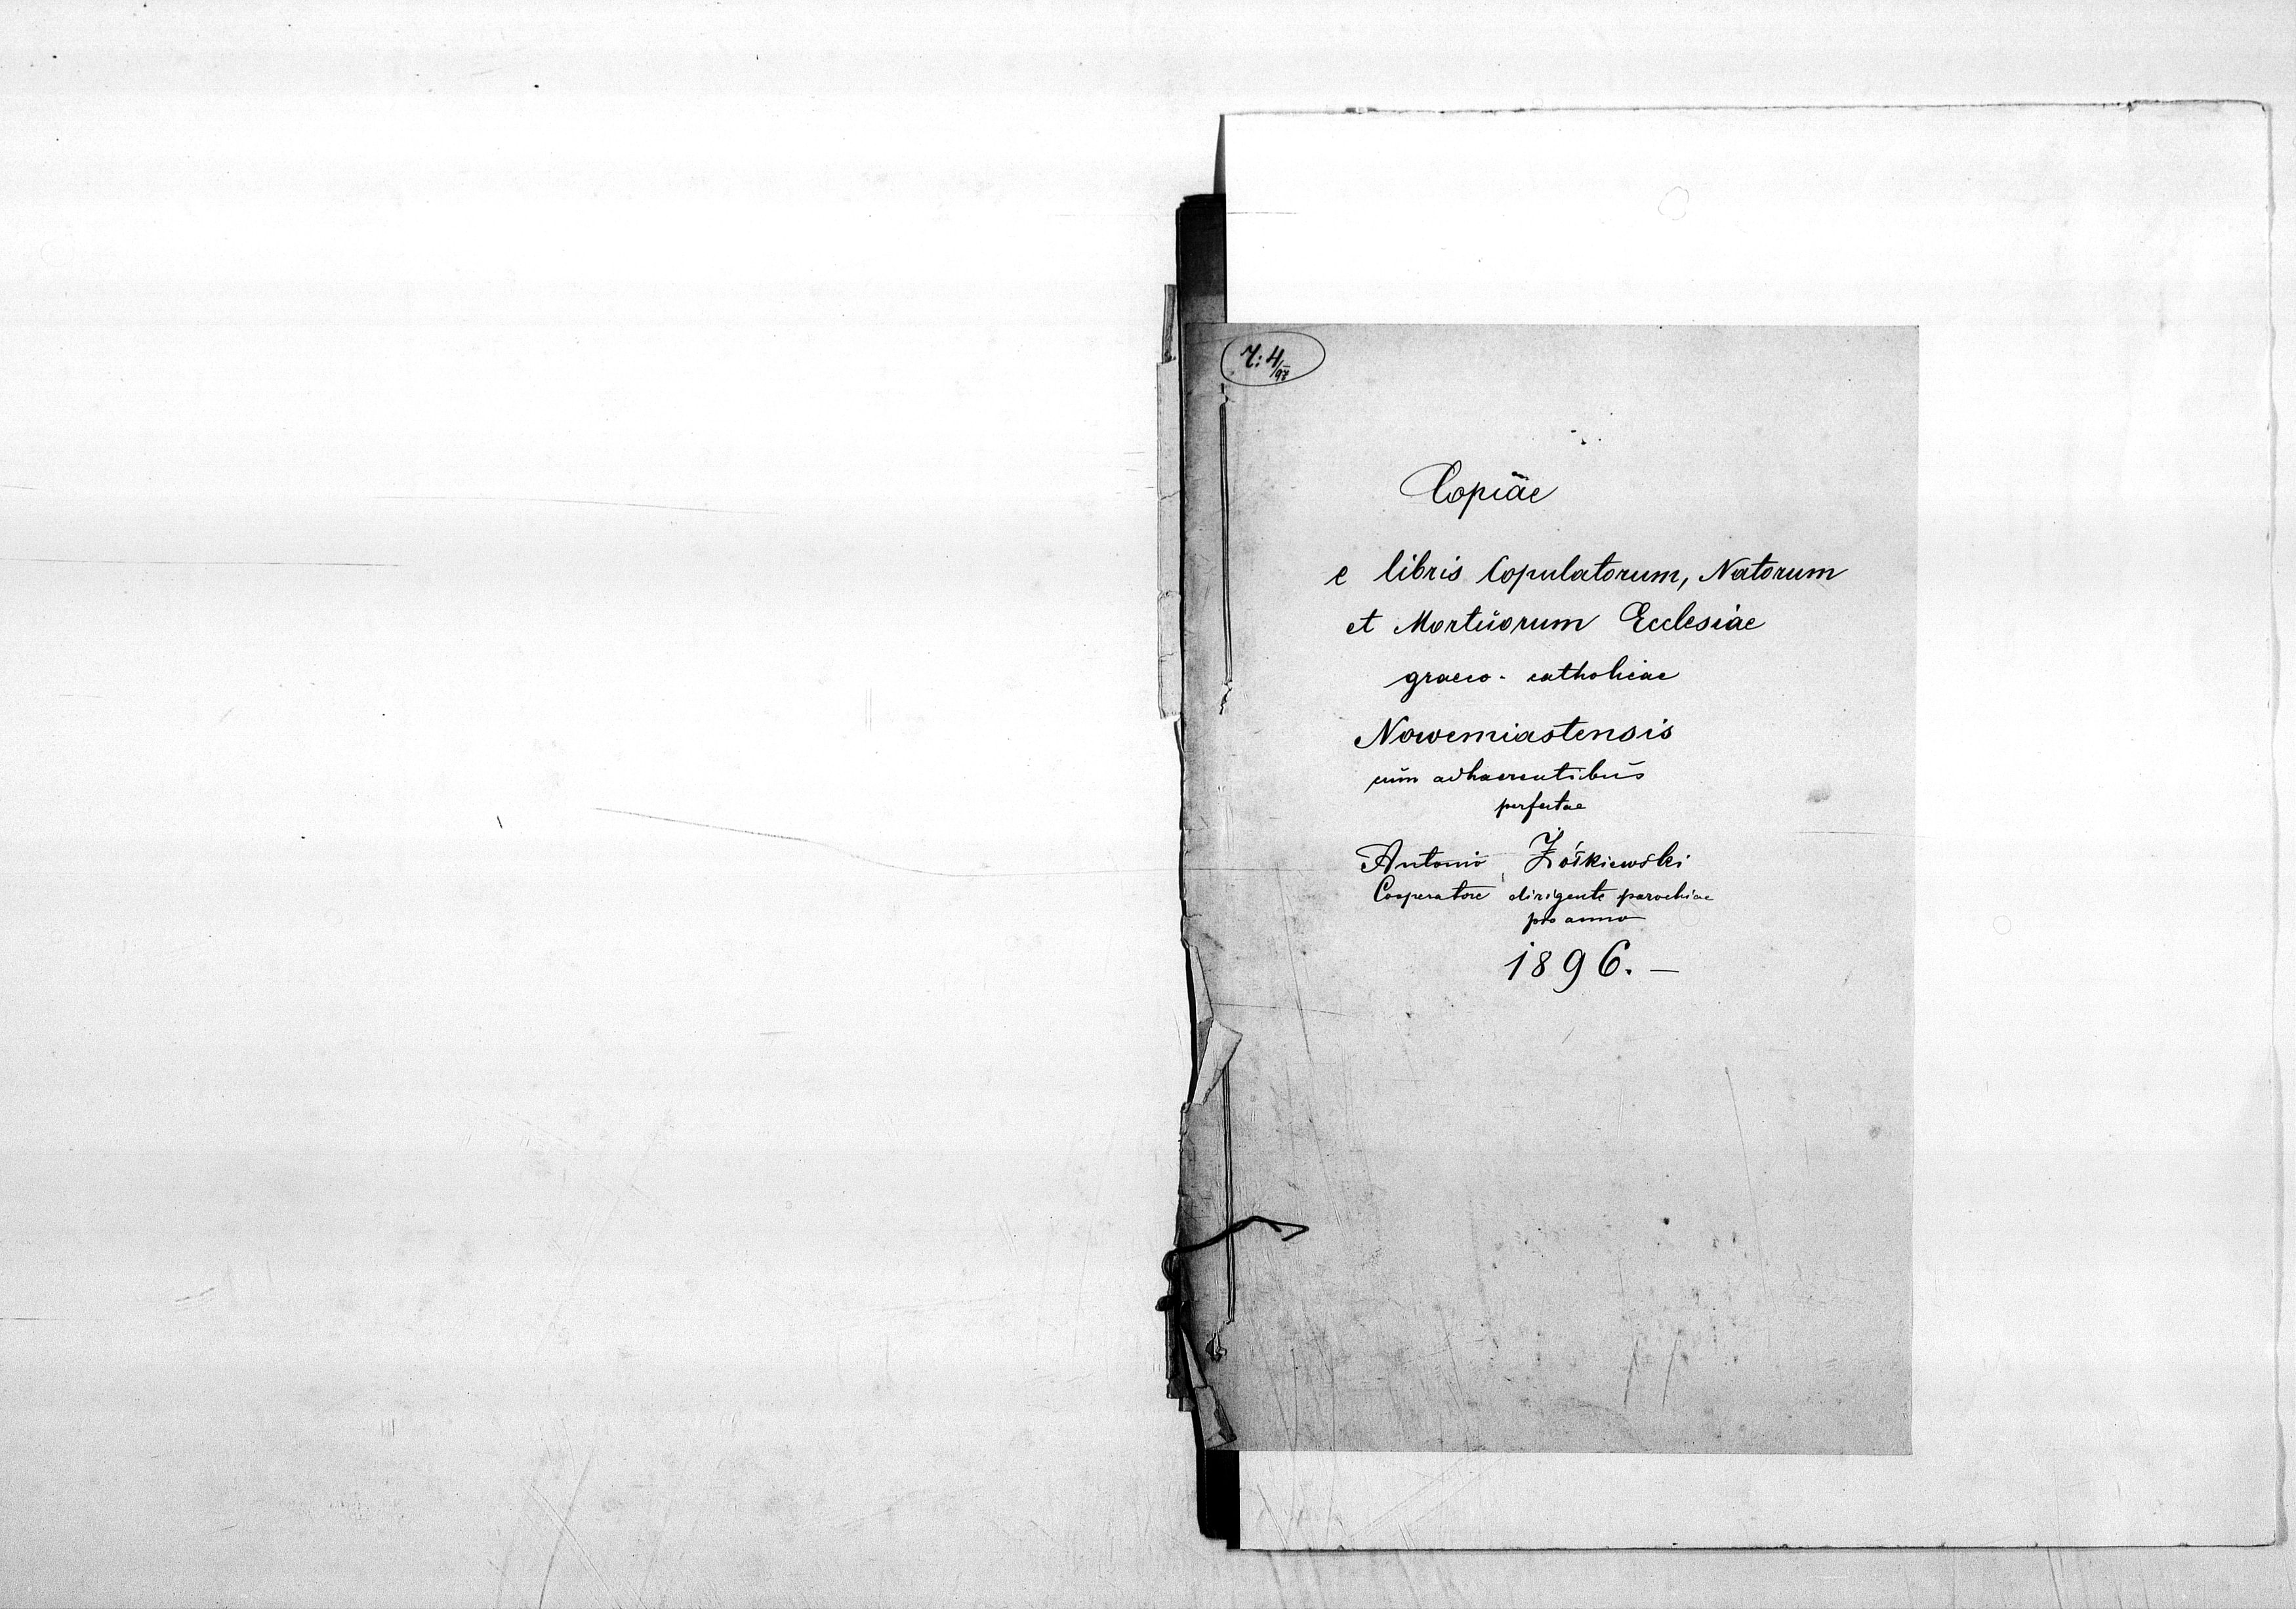 4/97
Copiae
e libris Copulatorum, Natorum
et Mortuorum Ecclesiae
graeco-catholicae
Nowemiastensis
cum adhaerentibus
perfectae
Antonio Żółkiewski
Cooperatore dirigente parochiae
pro anno
1896. —